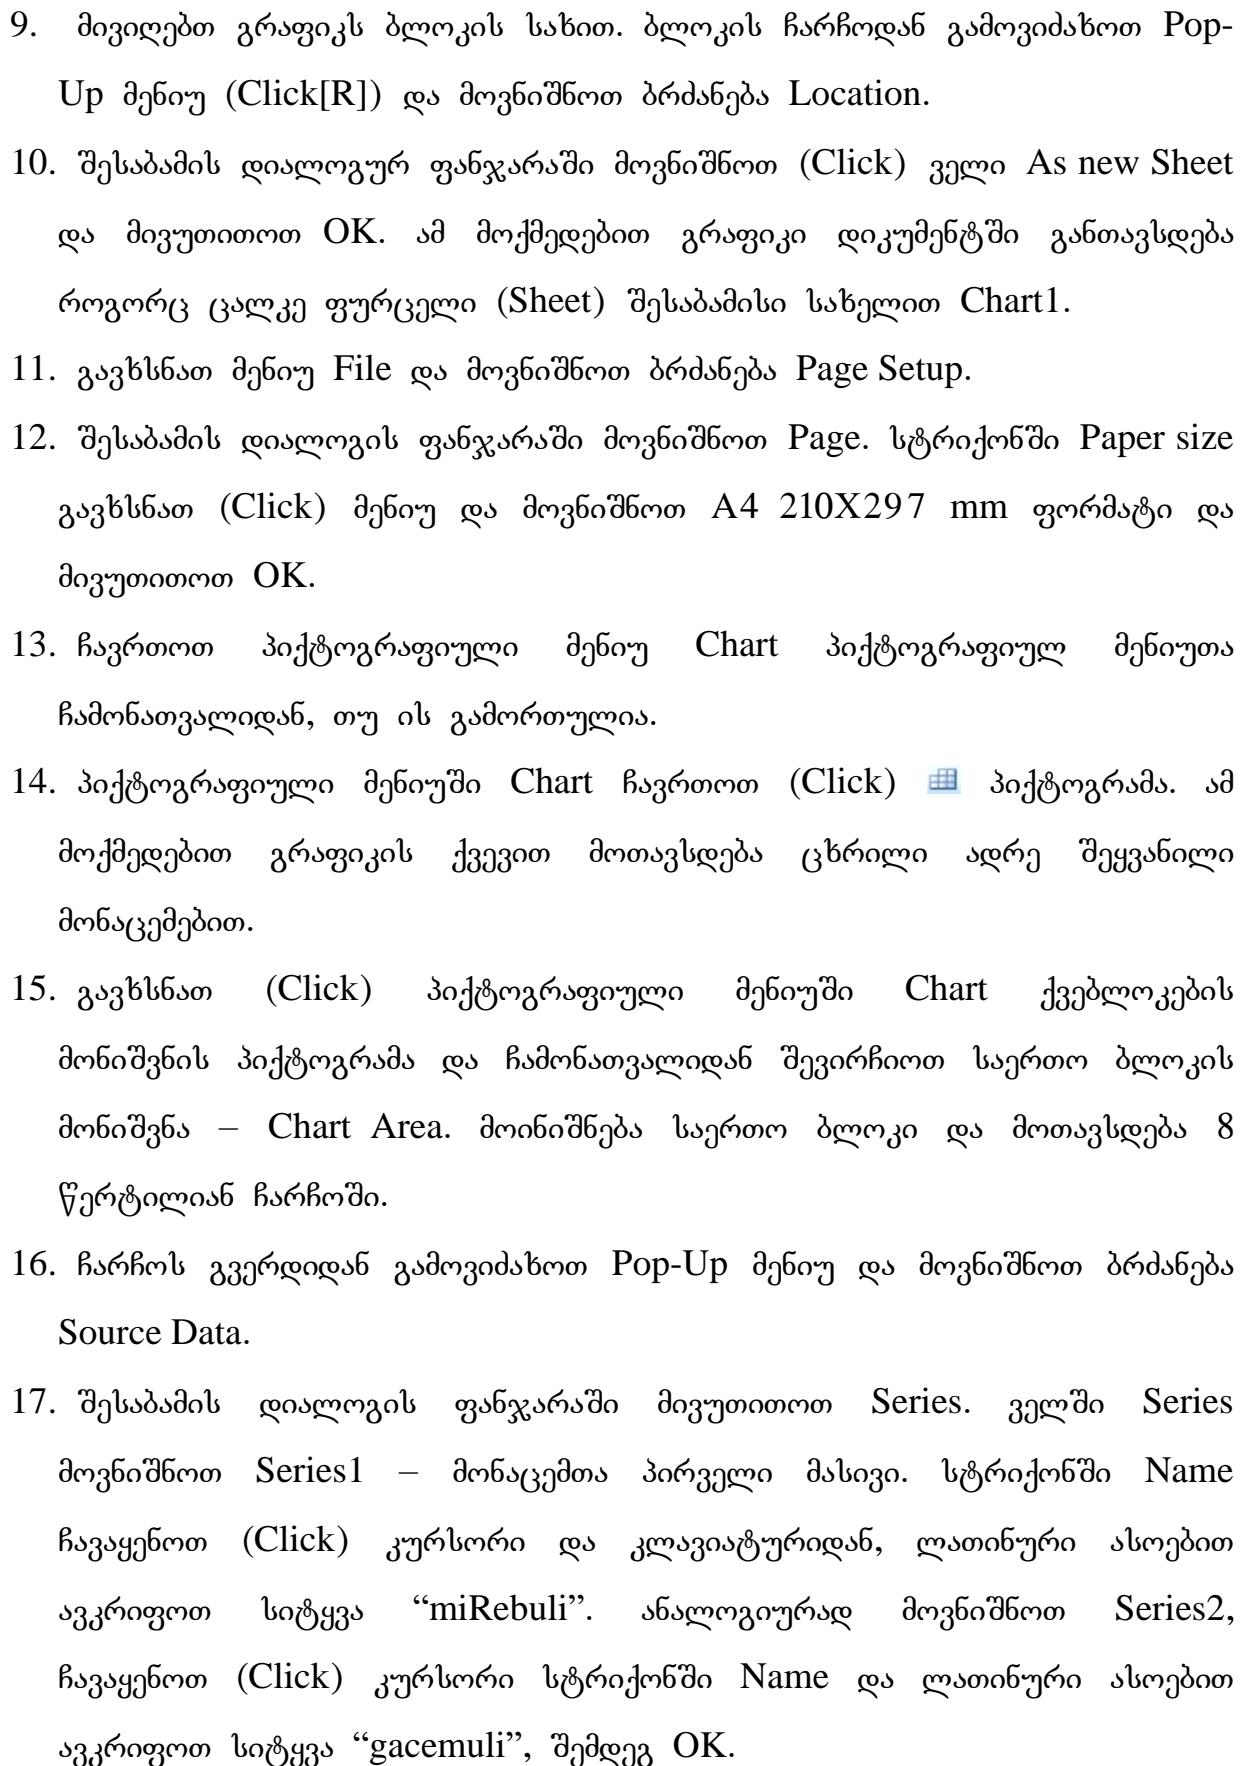 9. მივიღებთ გრაფიკს ბლოკის სახით. ბლოკის ჩარჩოდან გამოვიძახოთ Pop-
Up მენიუ (Click[R]) და მოვნიშნოთ ბრძანება Location.
10. შესაბამის დიალოგურ ფანჯარაში მოვნიშნოთ (Click) ველი As new Sheet
და მივუთითოთ OK. ამ მოქმედებით გრაფიკი დიკუმენტში განთავსდება
როგორც ცალკე ფურცელი (Sheet) შესაბამისი სახელით Chart1.
11. გავხსნათ მენიუ File და მოვნიშნოთ ბრძანება Page Setup.
12. შესაბამის დიალოგის ფანჯარაში მოვნიშნოთ Page. სტრიქონში Paper size
გავხსნათ (Click) მენიუ და მოვნიშნოთ A4 210X297 mm ფორმატი და
მივუთითოთ OK.
13. ჩავრთოთ პიქტოგრაფიული მენიუ Chart პიქტოგრაფიულ მენიუთა
ჩამონათვალიდან, თუ ის გამორთულია.
14. პიქტოგრაფიული მენიუში Chart ჩავრთოთ (Click) პიქტოგრამა. ამ
მოქმედებით გრაფიკის ქვევით მოთავსდება ცხრილი ადრე შეყვანილი
მონაცემებით.
15. გავხსნათ (Click) პიქტოგრაფიული მენიუში Chart ქვებლოკების
მონიშვნის პიქტოგრამა და ჩამონათვალიდან შევირჩიოთ საერთო ბლოკის
მონიშვნა – Chart Area. მოინიშნება საერთო ბლოკი და მოთავსდება 8
წერტილიან ჩარჩოში.
16. ჩარჩოს გვერდიდან გამოვიძახოთ Pop-Up მენიუ და მოვნიშნოთ ბრძანება
Source Data.
17. შესაბამის დიალოგის ფანჯარაში მივუთითოთ Series. ველში Series
მოვნიშნოთ Series1 – მონაცემთა პირველი მასივი. სტრიქონში Name
ჩავაყენოთ (Click) კურსორი და კლავიატურიდან, ლათინური ასოებით
ავკრიფოთ სიტყვა “miRebuli”. ანალოგიურად მოვნიშნოთ Series2,
ჩავაყენოთ (Click) კურსორი სტრიქონში Name და ლათინური ასოებით
ავკრიფოთ სიტყვა “gacemuli”, შემდეგ OK.